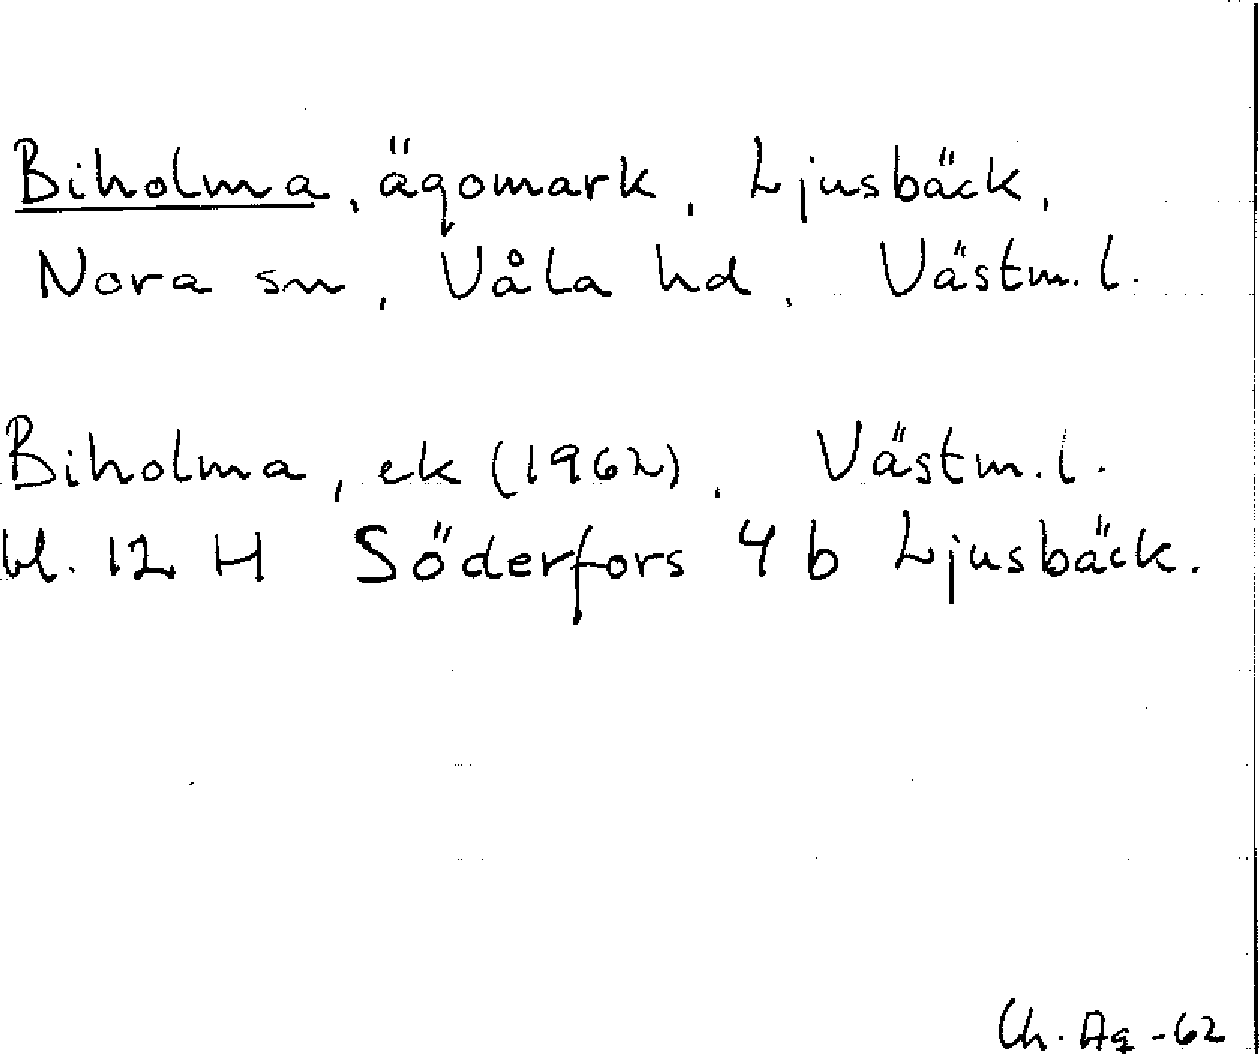 Biholma, ägomark, Ljusbäck,
Nora sn, Våla hd, Västm. l.
Biholma, ek (1962), Västm. l.
bl. 12 H Söderfors 4 b Ljusbäck.
Ch. Ag -62